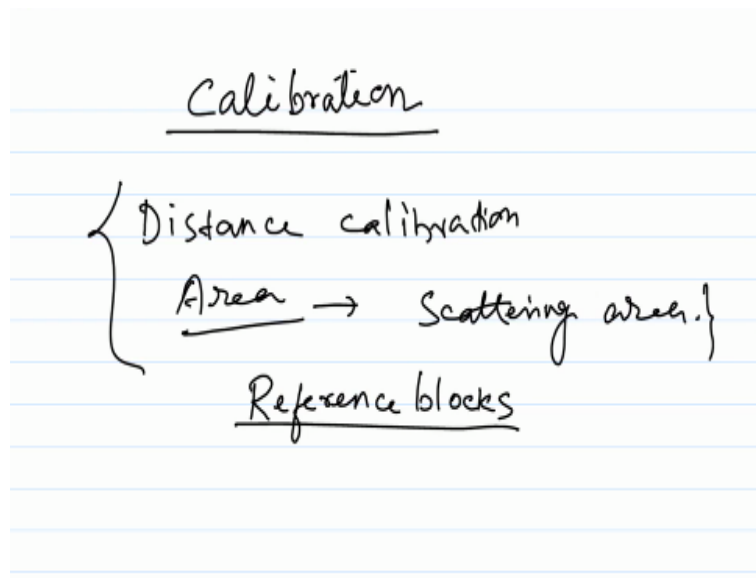 Calibration
{ Distance calibration
Area → Scattering area. }
Reference blocks